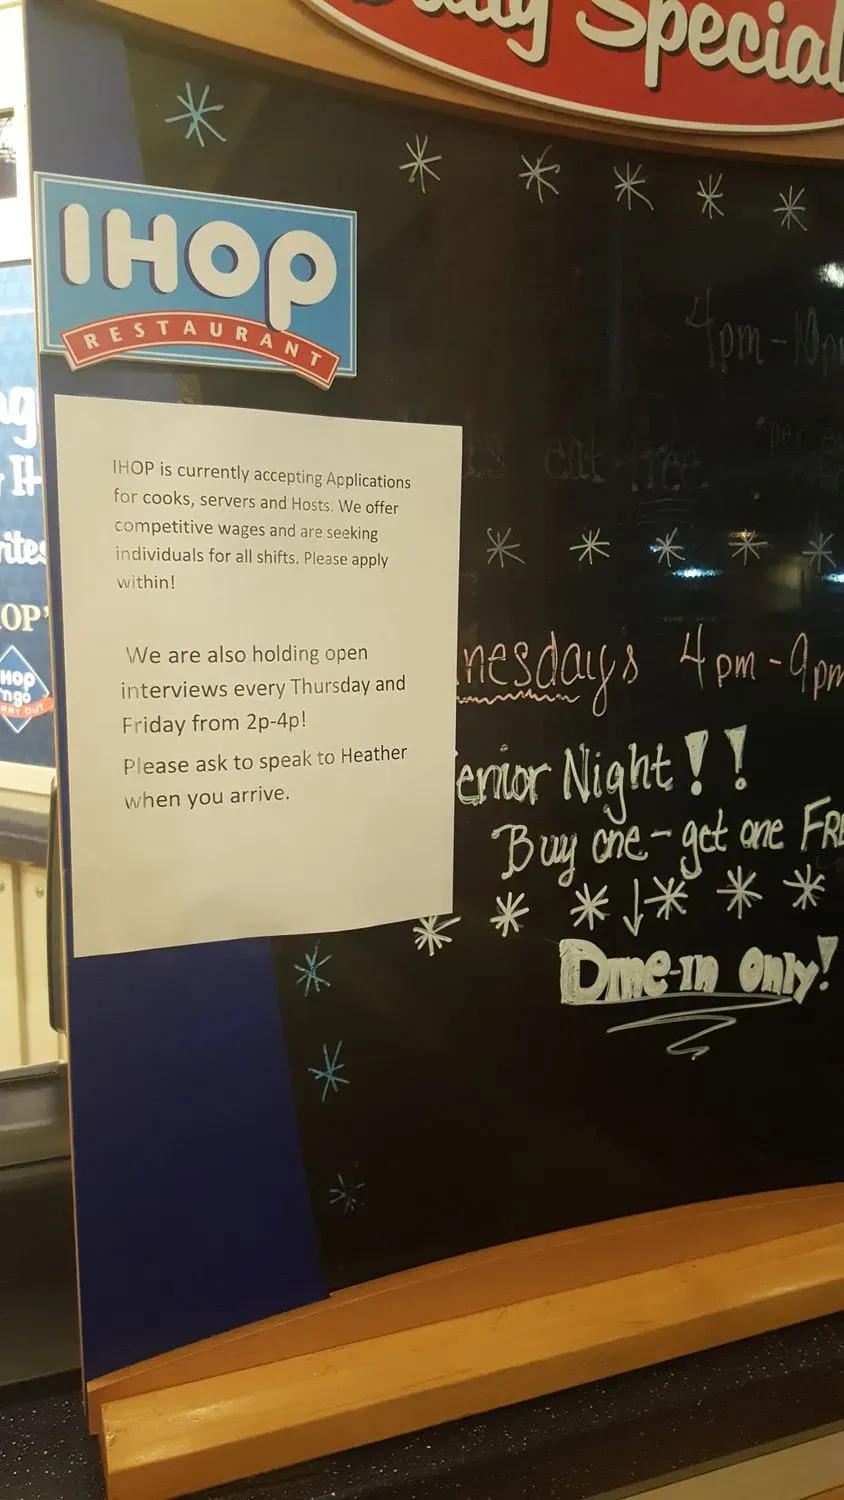 Daily Special
IHOP
RESTAURANT
4pm-10p
eat free
IHOP is currently accepting Applications
for cooks, servers and Hosts. We offer
competitive wages and are seeking
individuals for all shifts. Please apply
within!
We are also holding open
interviews every Thursday and
Friday from 2p-4p!
Please ask to speak to Heather
when you arrive.
nesdays 4pm-9pm
enior Night!!
Buy one-get one FRE
Dine-in Only!
HOP
'n go